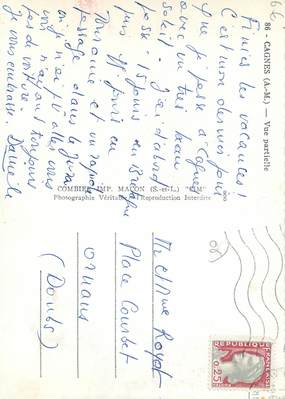 86 - CAGNES (A.-M.). — Vue partielle
Finies les vacances !
C'est mon dernier jour
que je passe à Cagnes
avec un très beau
soleil. J'ai d'abord
passé 15 jours en
puis 14 jours en
et un rapide
passage dans le Jura
où je n'ai pu aller vous
voir n'ayant toujours
pas de voiture.
Je vous embrasse. Danièle
COMBIER IMP. MACON (S.-et-L.) "CIM"
Photographie Véritable - Reproduction Interdite
Mr et Mme Royot
Place Courbet
Ornans
(Doubs)
REPUBLIQUE FRANÇAISE
0,25